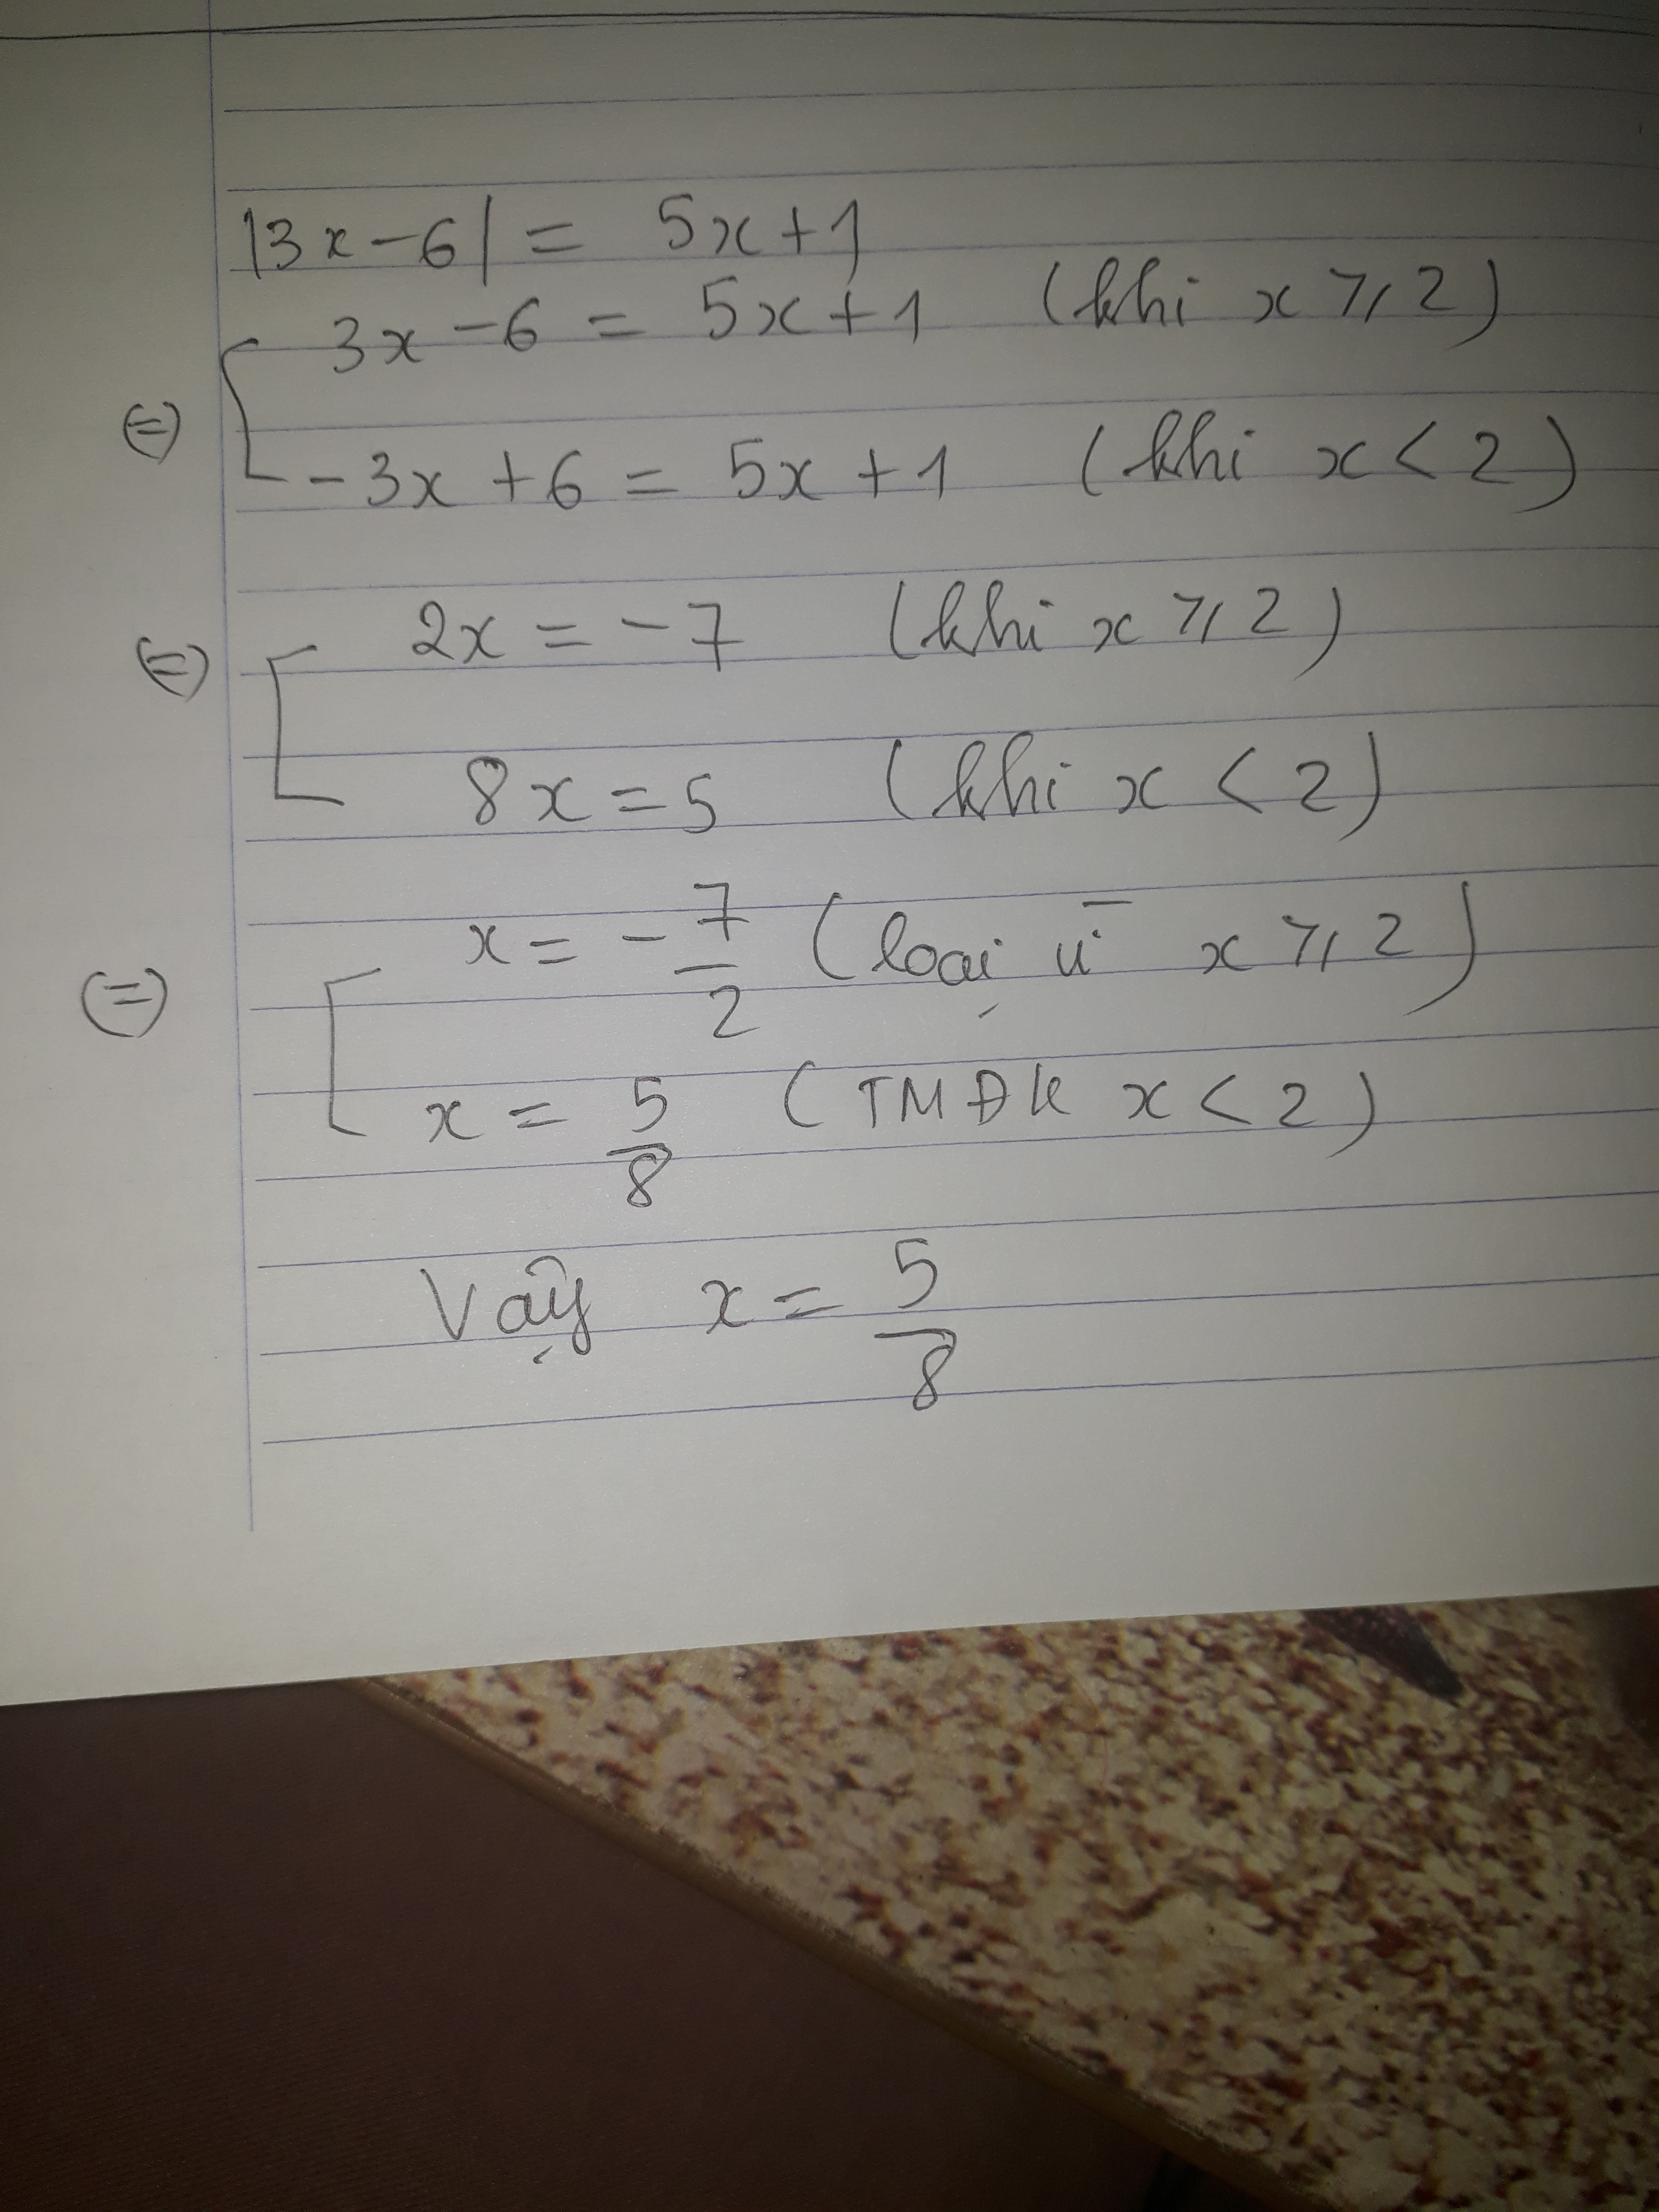 |3x-6| = 5x+1
3x-6 = 5x+1 (khi x ⩾ 2)
(=)
-3x+6 = 5x+1 (khi x < 2)
2x = -7 (khi x ⩾ 2)
(=)
8x = 5 (khi x < 2)
x = -7/2 (loại vì x ⩾ 2)
(=)
x = 5/8 (TMĐK x < 2)
Vậy x = 5/8